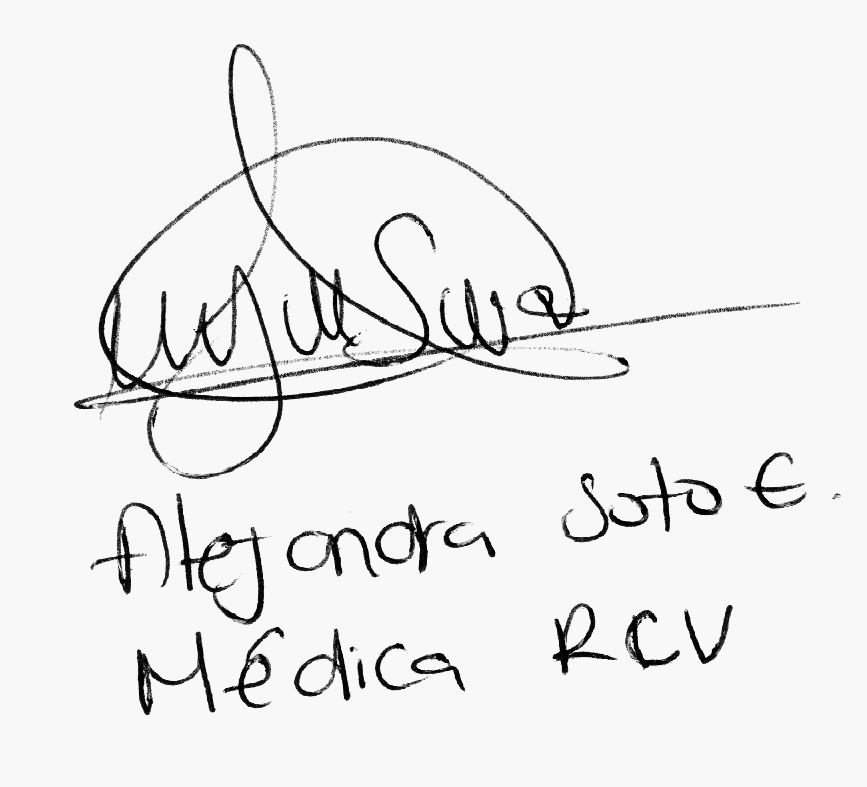 Alejandra Soto E.
Médica RCV